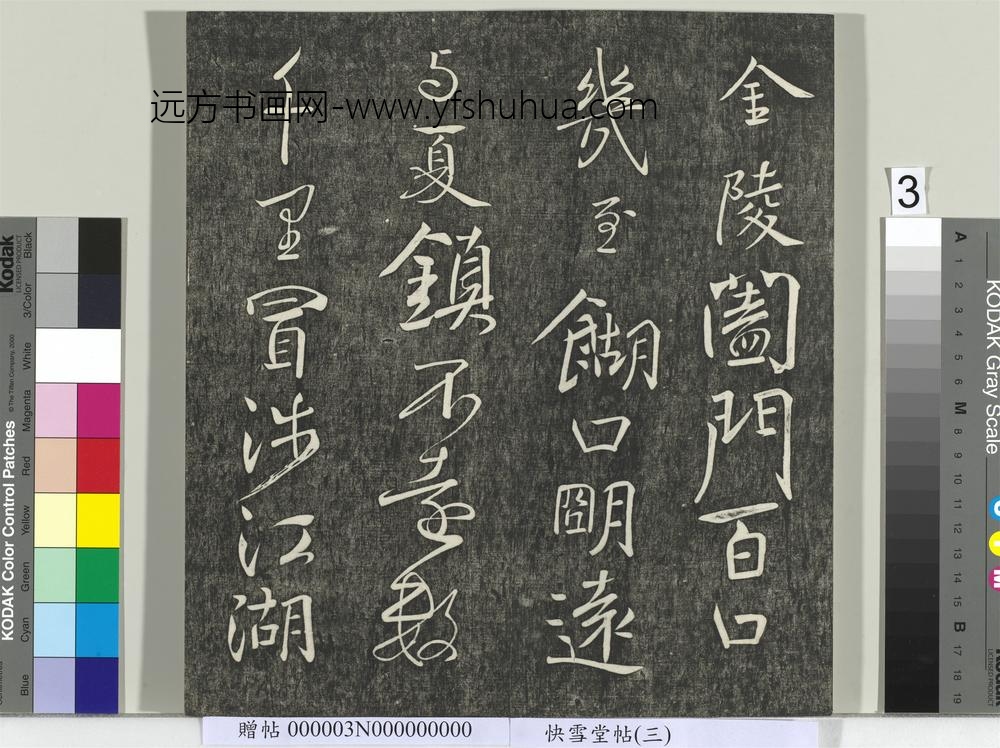 金陵闔門百口
幾至餬口明遠
与夏鎮不遠數
千里冒涉江湖
远方书画网-www.yfshuhua.com
3
贈帖 000003N000000000
快雪堂帖(三)
Kodak
LICENSED PRODUCT
KODAK Color Control Patches
© The Tiffen Company, 2000
Black
3/Color
White
Magenta
Red
Yellow
Green
Cyan
Blue
KODAK Gray Scale
A 1 2 3 4 5 6 M 8 9 10 11 12 13 14 15 B 17 18 19